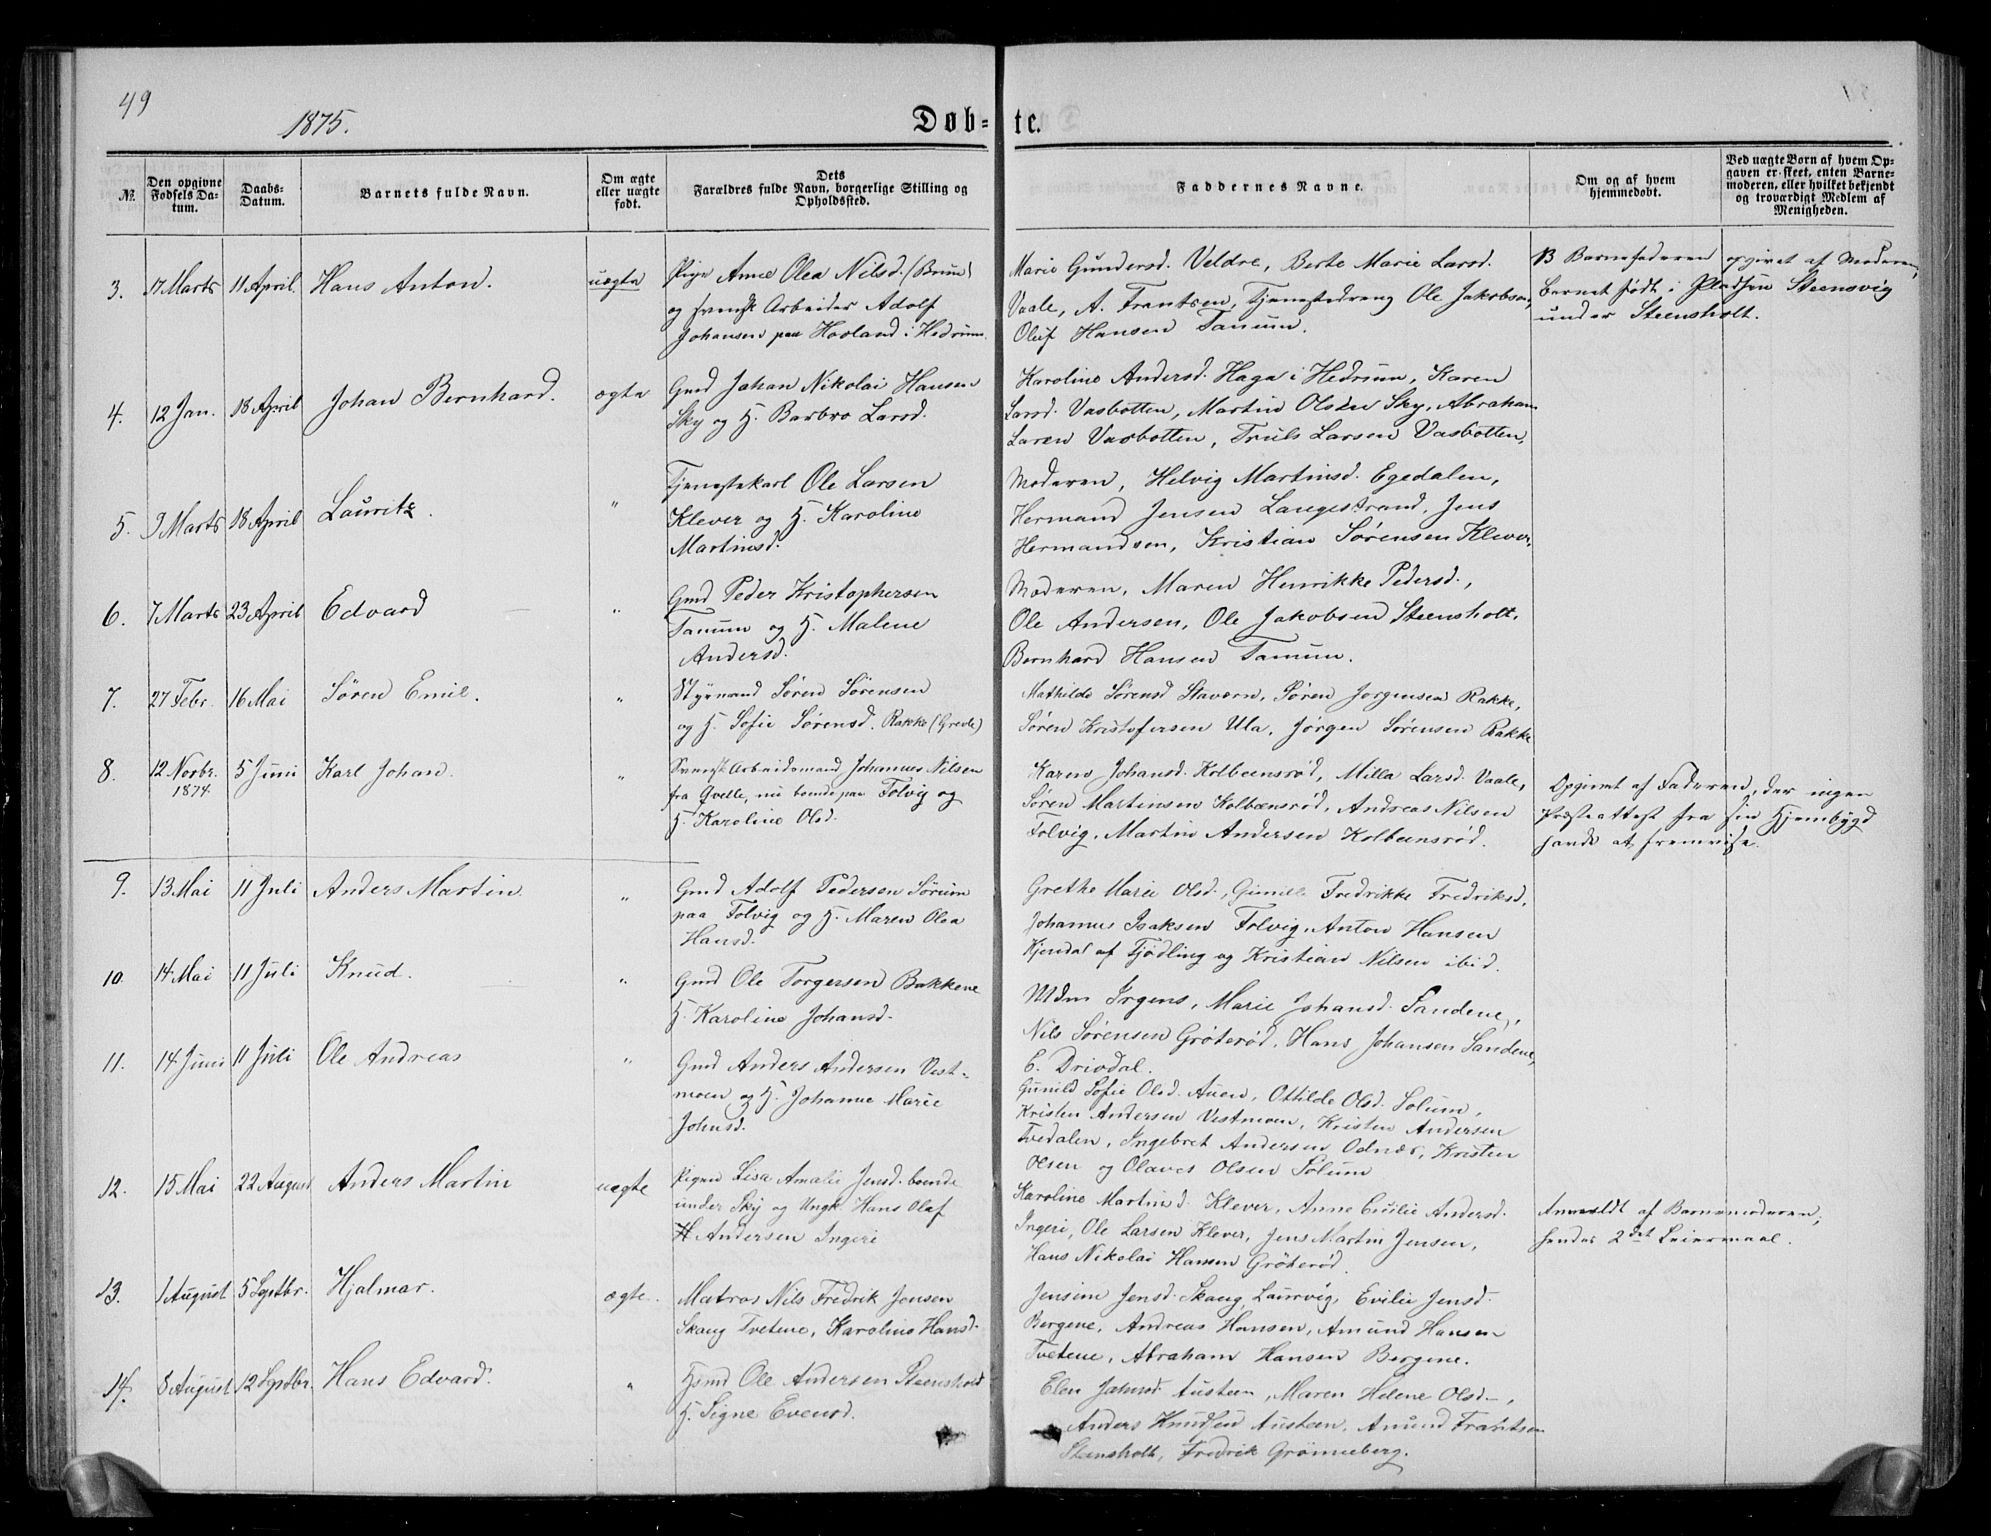 49
1875.
Døb-
te.
№.
Den opgivne
Fødsels Da-
tum.
Daabs-
Datum.
Barnets fulde Navn.
Om ægte
eller uægte
født.
Dets
Farældres fulde Navn, borgerlige Stilling og
Opholdssted.
Faddernes Navne.
Om og af hvem
hjemmedøbt.
Ved uægte Børn af hvem Op-
gaven er skeet, enten Barne-
moderen, eller hvilket bekjendt
og troværdigt Medlem af
Menigheden.
3. 17 Marts 11 April. Hans Anton. uægte
Pige Anne Olea Nilsd. (Brun)
og svensk Arbeider Adolf
Johansen paa Hovland i Hedrum.
Marie Gundersd. Veldre, Berte Marie Larsd.
Vaale, A. Frantsen, Tjenestedreng Ole Jakobsen,
Oluf Hansen Tanum.
B Barnefaderen opgivet af Moderen,
Barnet født i Pladsen Steensvig
under Steensholt.
4. 12 Jan. 18 April Johan Bernhard. ægte
Gmd Johan Nikolai Hansen
Sky og H. Barbro Larsd.
Karoline Andersd. Haga i Hedrum, Karen
Larsd. Vasbotten, Martin Olsen Sky, Abraham
Larsen Vasbotten, Truls Larsen Vasbotten,
5. 9 Marts 18 April Lauritz. "
Tjenestekarl Ole Larsen
Klever og H. Karoline
Martinsd.
Moderen, Helvig Martinsd. Egedalen,
Hermand Jensen Langestrand, Jens
Hermandsen, Kristian Sørensen Klever,
6. 7 Marts 23 April Edvard "
Gmd Peder Kristophersen
Tanum og H. Malene
Andersd.
Moderen, Maren Henrikke Pedersd.,
Ole Andersen, Ole Jakobsen Steensholt,
Bernhard Hansen Tanum.
7. 27 Febr. 16 Mai Søren Emil. "
Styrmand Søren Sørensen
og H. Sofie Sørensd. Rakke (Grevle)
Mathilde Sørensd Stavern, Søren Jørgensen Rakke,
Søren Kristofersen Ula, Jørgen Sørensen Rakke
8. 12 Novbr. 5 Juni Karl Johan. "
1874.
Svensk Arbeidsmand Johannes Nilsen
fra Gvelle, nu boende paa Tolvig og
H. Karoline Olsd.
Karen Johansd. Kolbeensrød, Milla Larsd. Vaale,
Søren Martinsen Kolbeensrød, Andreas Nilsen
Tolvig, Martin Andersen Kolbeensrød.
Opgivet af Faderen, der ingen
Præsteattest fra sin Hjembygd
havde at fremvise.
9. 13 Mai 11 Juli Anders Martin. "
Gmd Adolf Pedersen Sørum
paa Tolvig og H. Maren Olea
Hansd.
Grethe Marie Olsd., Gunille Fredrikke Fredriksd,
Johannes Isaksen Tolvig, Anton Hansen
Hjendal af Tjødling og Kristian Nilsen ibid.
10. 14 Mai 11 Juli Knud. "
Gmd Ole Torgersen Bakkene
H. Karoline Johansd.
Mdm Irgens, Marie Johansd. Sandene,
Nils Sørensen Grøterød, Hans Johansen Sandene,
C. Drivdal.
11. 14 Juni 11 Juli Ole Andreas "
Gmd Anders Andersen Vest-
moen og H. Johanne Marie
Johnsd.
Gunild Sofie Olsd. Auen, Ottilde Olsd. Solum,
Kristen Andersen Vestmoen, Kristen Andersen
Tvedalen, Ingebret Andersen Odnæs, Kristen
Olsen og Olaves Olsen Solum
12. 15 Mai 22 August Anders Martin uægte
Pigen Lisa Amalie Jensd. boende
under Sky og Ungk. Hans Olaf
Andersen Ingeri
Karoline Martinsd. Klever, Anne Cecilie Andersd.
Ingeri, Ole Larsen Klever, Jens Martin Jensen,
Hans Nikolai Hansen Grøterød.
Anmeldt af Barnemoderen;
hendes 2det Leiermaal.
13. 1 August 5 Septbr. Hjalmar. ægte.
Matros Nils Fredrik Jensen
Skaug Tvetene, Karoline Hansd.
Jensine Jensd. Skaug, Laurvig, Evilie Jensd.
Bergene, Andreas Hansen, Amund Hansen
Tvetene, Abraham Hansen Bergene.
14. 8 August 12 Septbr. Hans Edvard. "
Hsmd Ole Andersen Steensholt
H. Signe Evensd.
Elen Jakobsd. Austeen, Maren Helene Olsd.,
Anders Knudsen Austeen, Amund Frantsen
Steensholt, Fredrik Grønneberg.